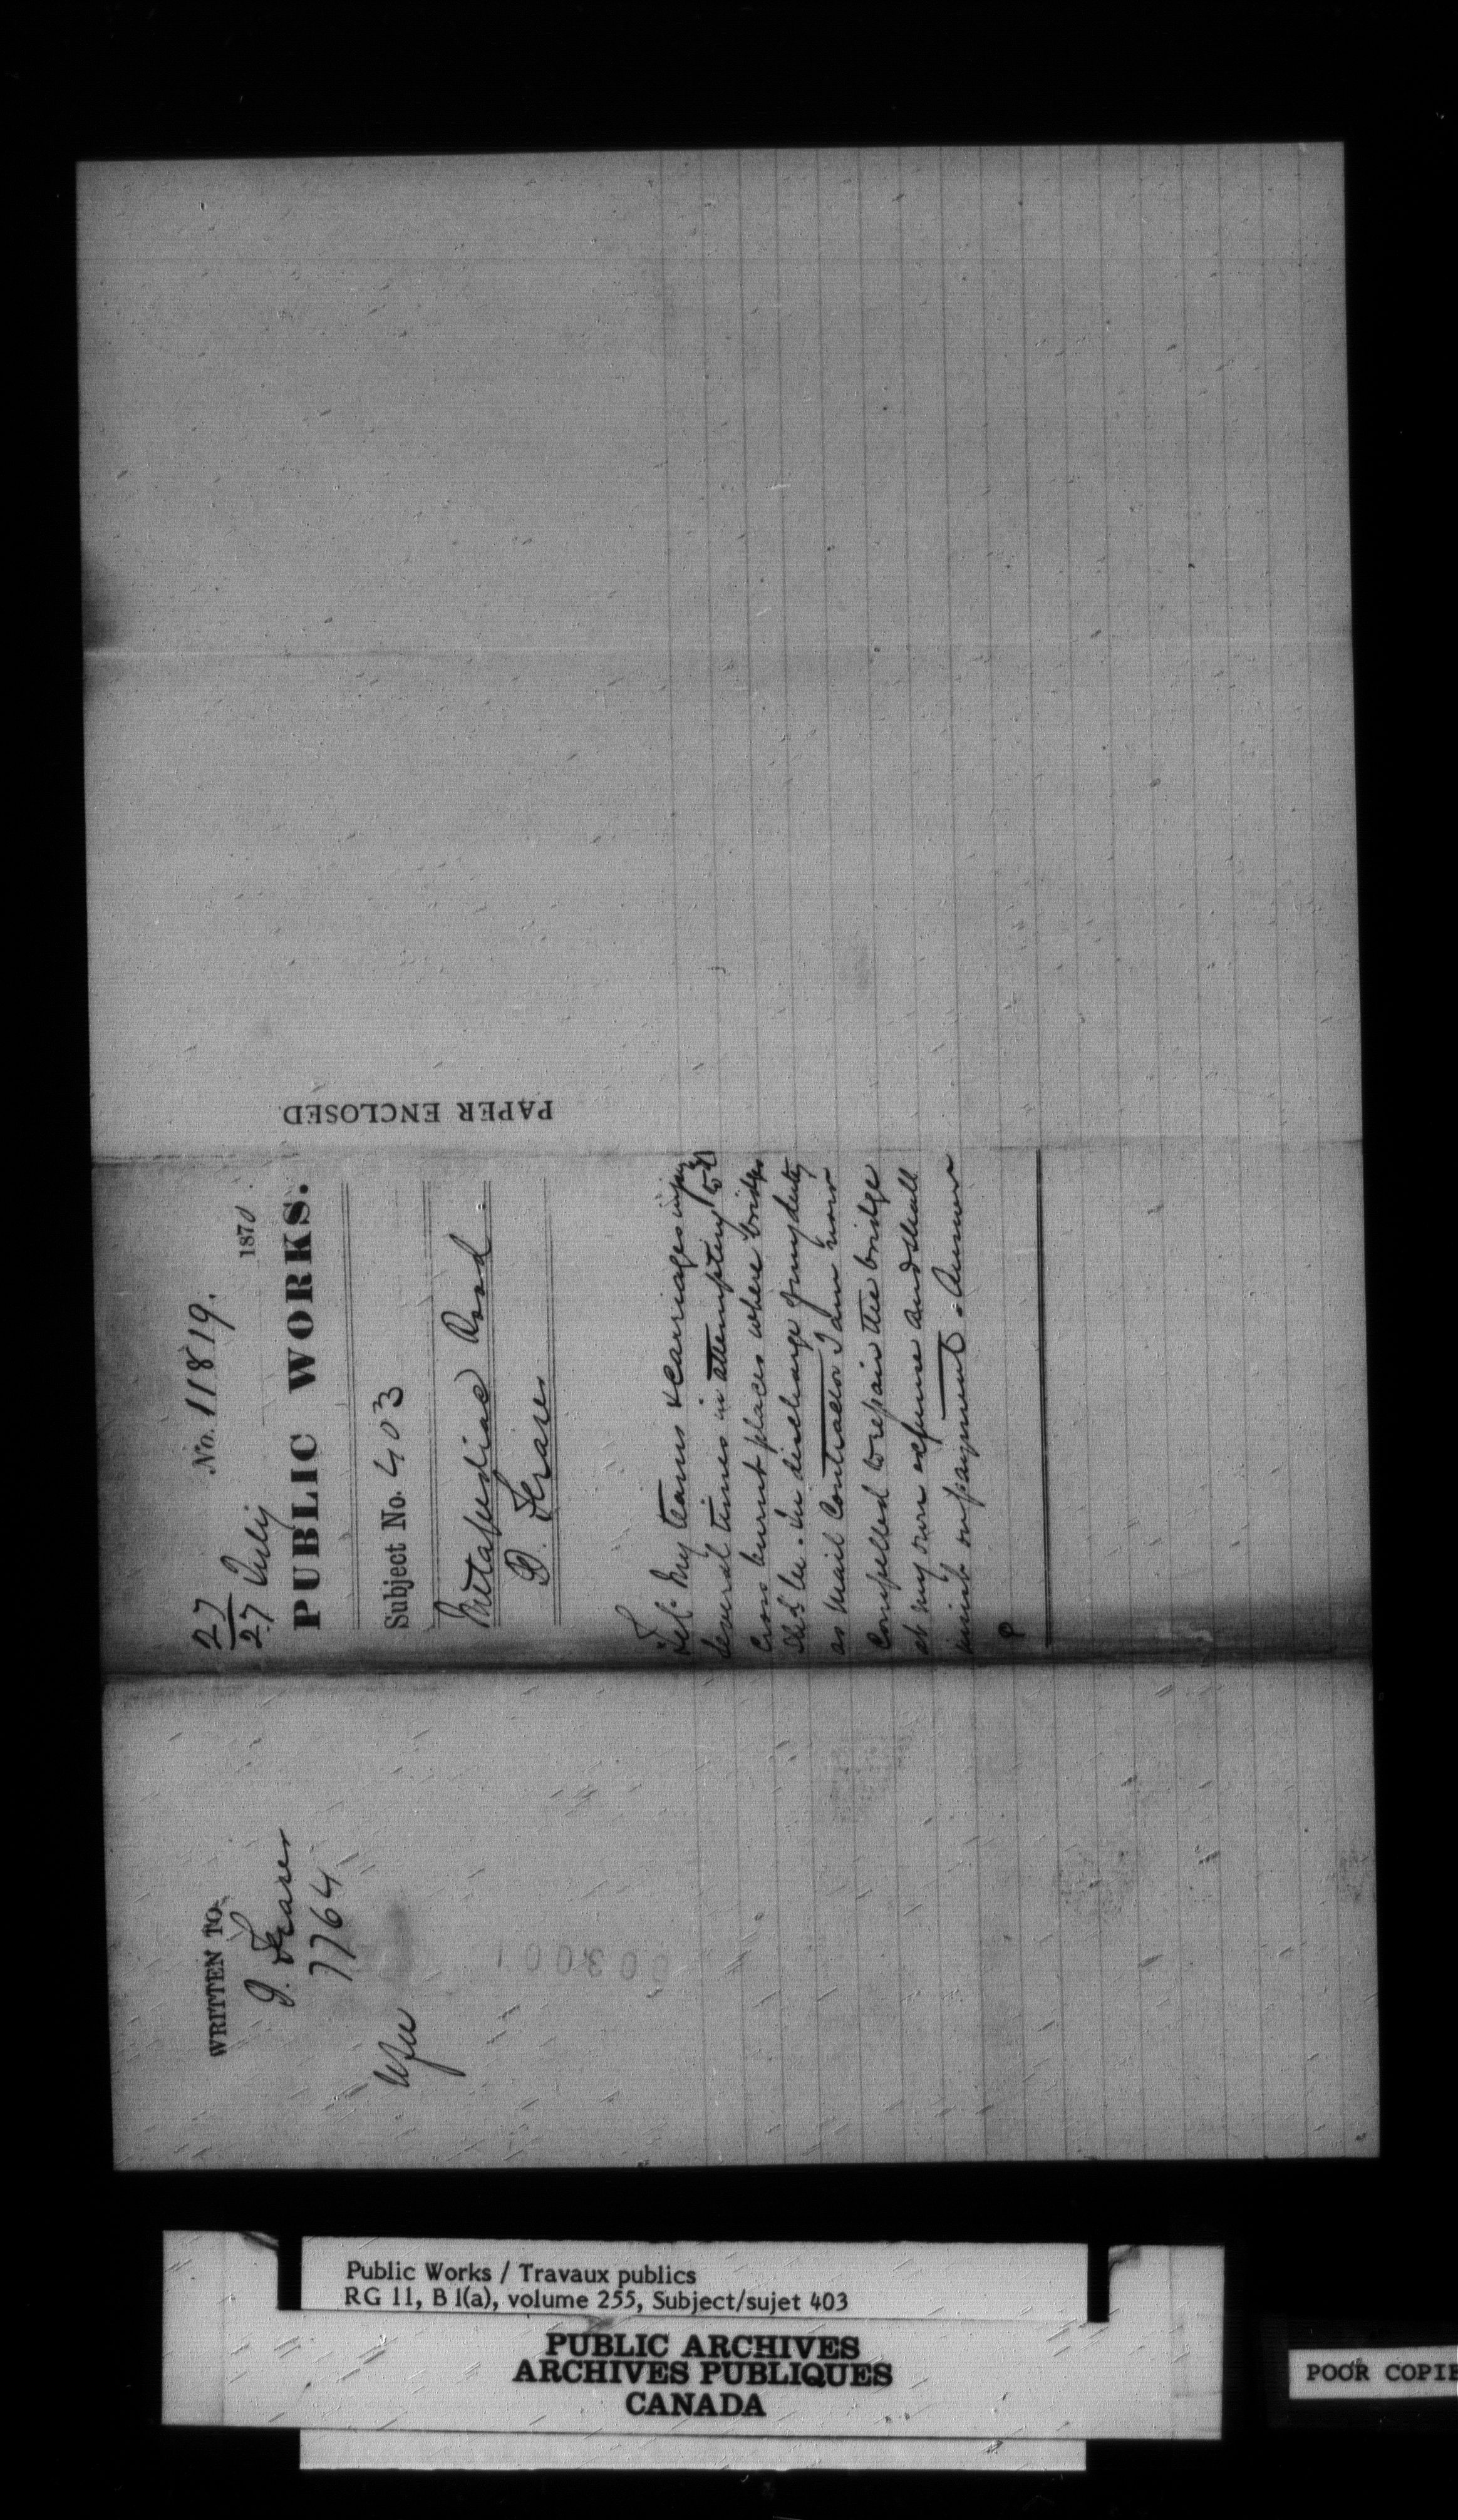 27
27 July
No. 11819.
1870
PUBLIC WORKS.
Subject No. 403
Metapediac Road
D. Fraser
Tel. My teams & carriages injured
several times in attempting to
cross burnt places where bridges
shd be. In discharge of my duty
as Mail Contractor I am now
compelled to repair the bridge
at my own expense and shall
insist on payment. Answer
PAPER ENCLOSED
WRITTEN TO
D. Fraser
7764
003001
Public Works / Travaux publics
RG 11, B 1(a), volume 255, Subject/sujet 403
PUBLIC ARCHIVES
ARCHIVES PUBLIQUES
CANADA
POOR COPIE